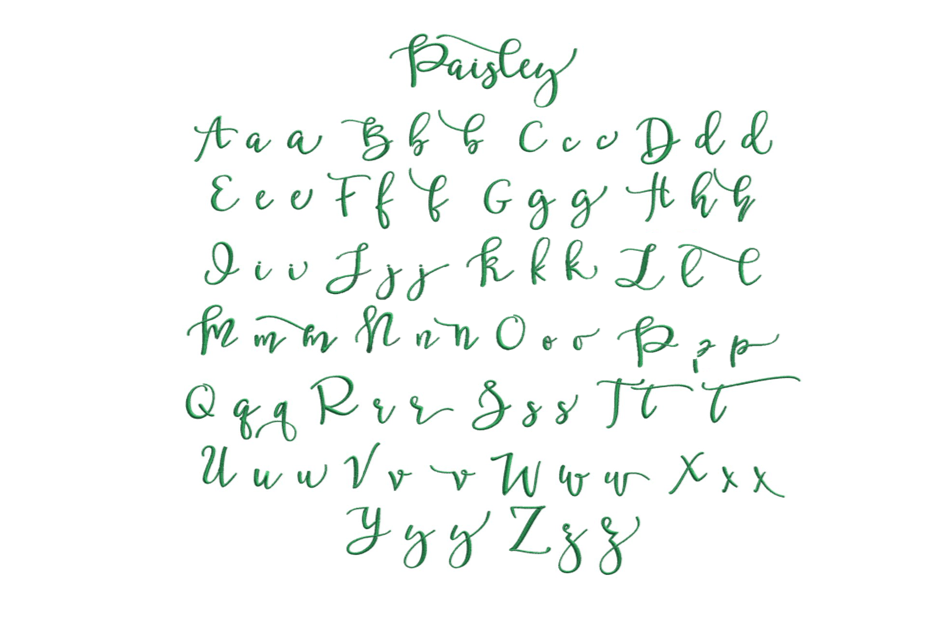 Paisley
A a a B b b C c c D d d
E e e F f f G g g H h h
I i i J j j K k k L l l
M m m N n n O o o P p p
Q q q R r r S s s T t t
U u u V v v W w w X x x
Y y y Z z z